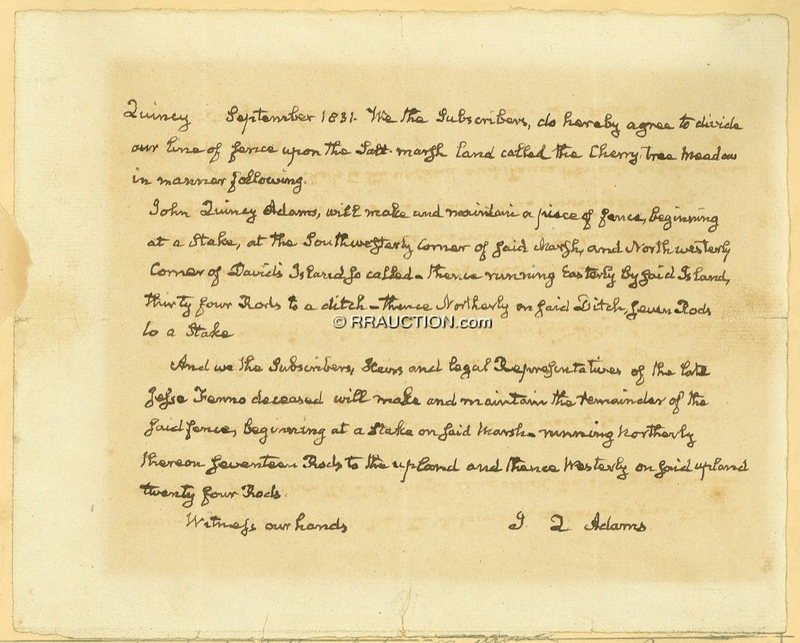 Quincy September 1831. We the Subscribers, do hereby agree to divide
our line of fence upon the Salt marsh land called the Cherry tree Meadow
in manner following.
John Quincy Adams, will make and maintain a piece of fence, beginning
at a Stake, at the Southwesterly Corner of said Marsh, and North westerly
Corner of David's Island, so called – thence running Easterly by said Island,
thirty four Rods to a ditch – thence Northerly on said Ditch, seven Rods
to a Stake
© RRAUCTION.com
And we the Subscribers, Heirs and legal Representatives of the late
Jesse Fenno deceased will make and maintain the remainder of the
said fence, beginning at a Stake on said Marsh – running Northerly
thereon seventeen Rods to the upland and thence Westerly on said upland
twenty four Rods.
Witness our hands J Q Adams